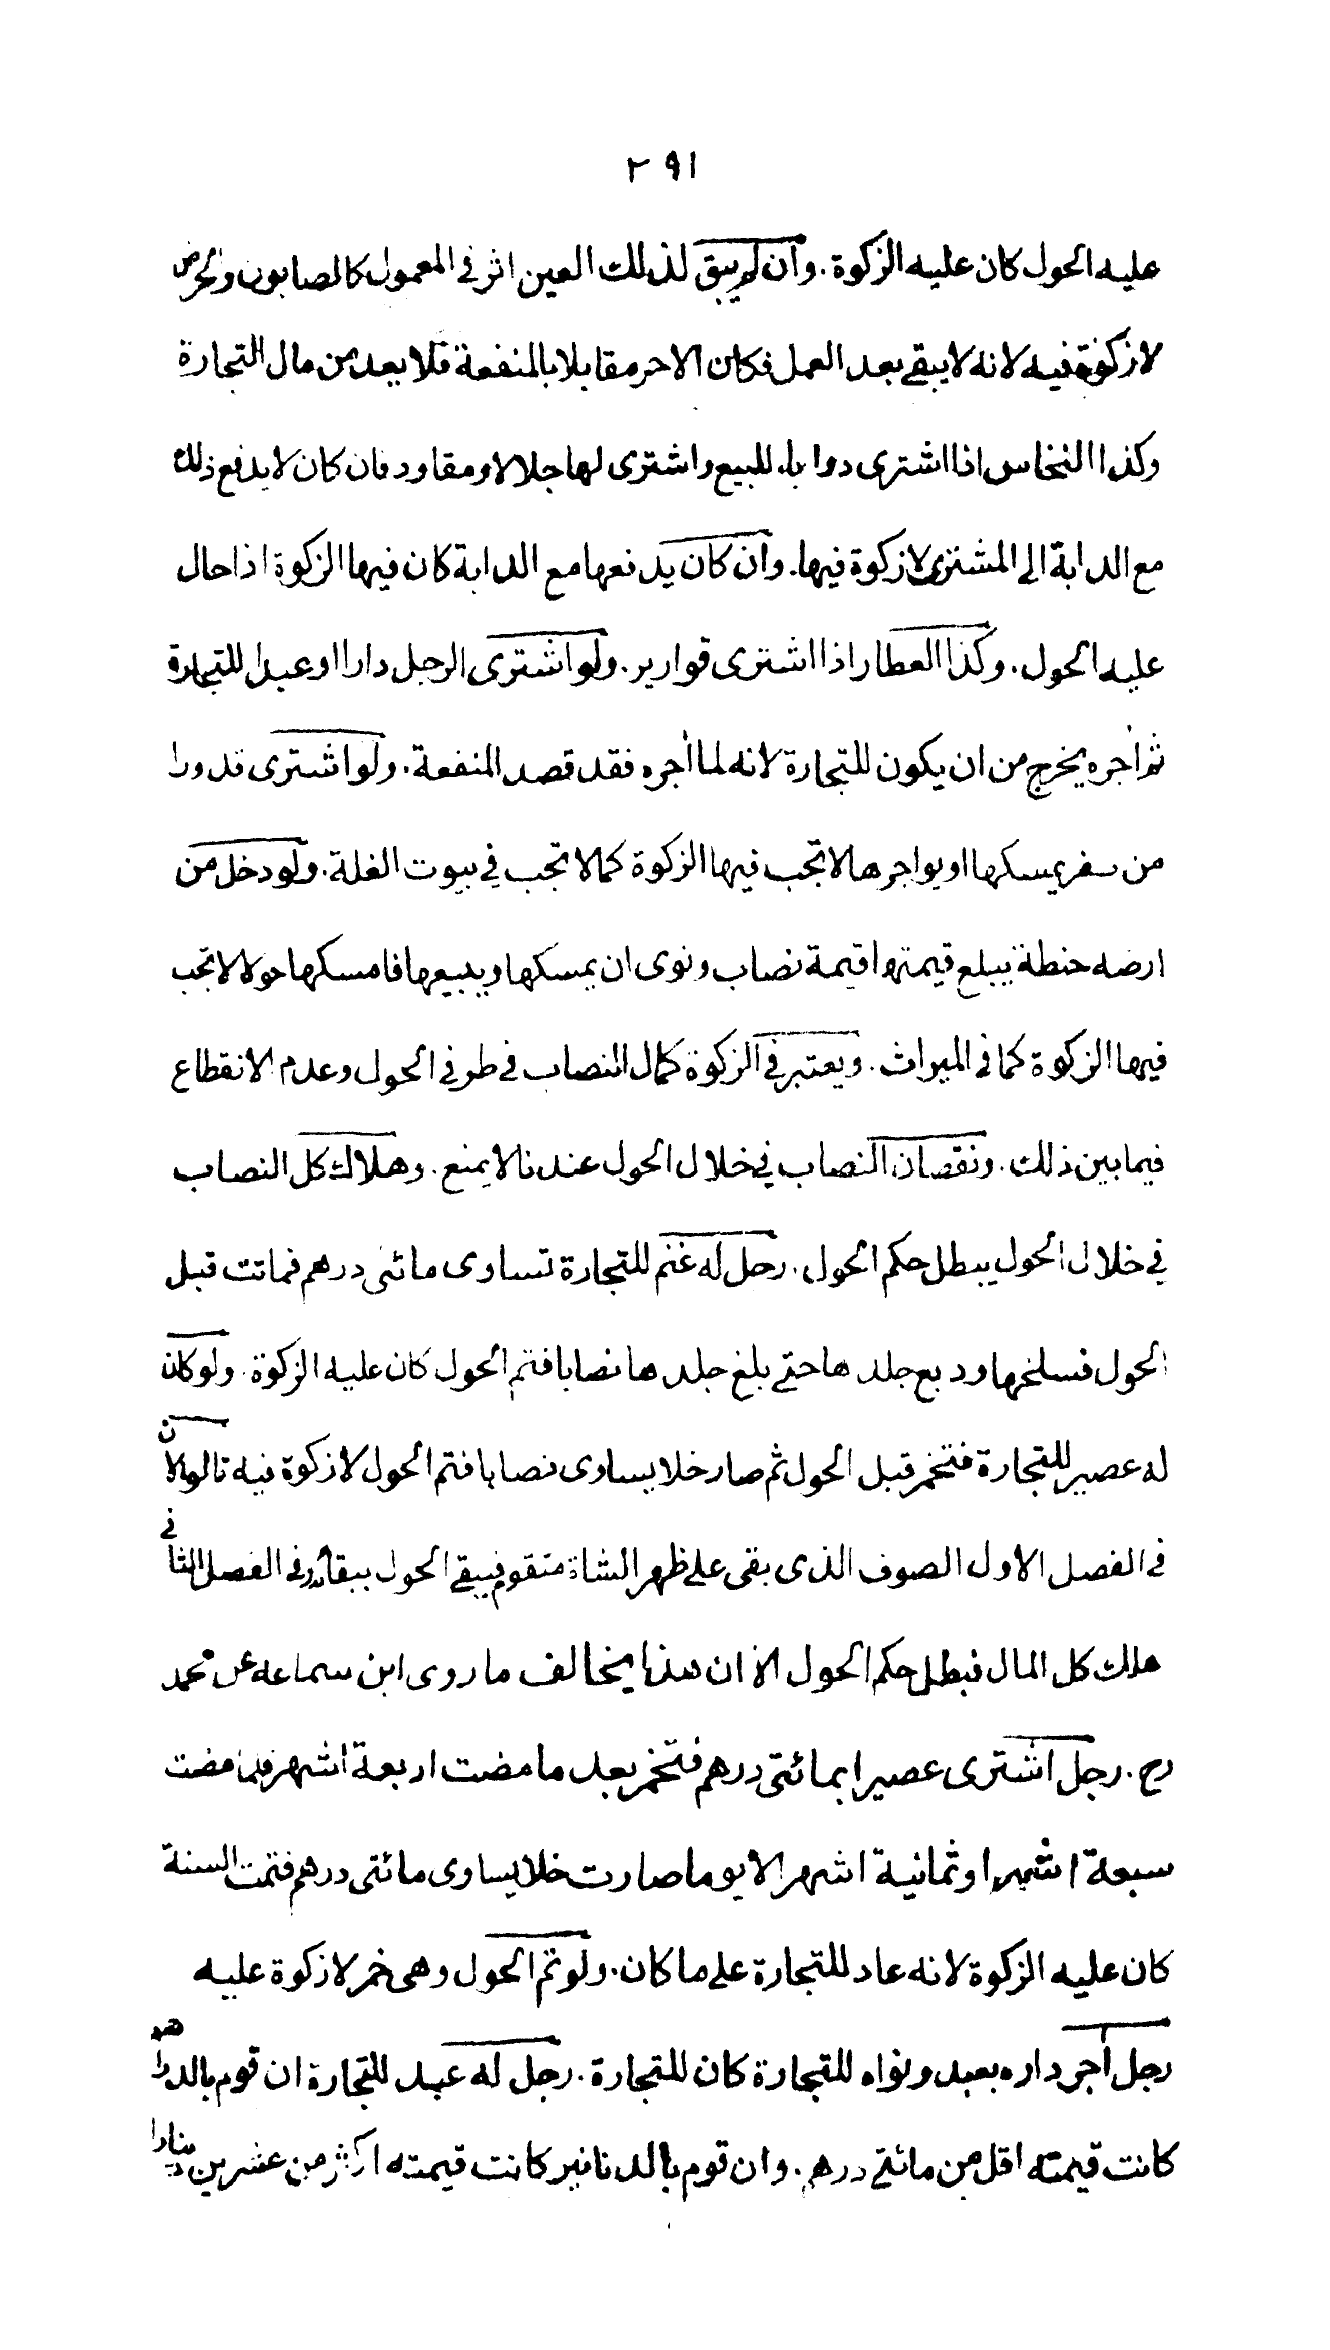 ٢٩١
عليه الحول كان عليه الزكوة. وان لم يبق لذلك العين اثر في المعمول كالصابون والحرض
لا زكوة فيه لانه لا يبقى بعد العمل فكان الاجر مقابلا بالمنفعة فلا يعد من مال التجارة
وكذا النخاس اذا اشترى دوابا للبيع واشترى لها جلالا ومقاود فان كان لا يدفع ذلك
مع الدابة الى المشترى لا زكوة فيها. وان كان يدفعها مع الدابة كان فيها الزكوة اذا حال
عليه الحول. وكذا العطار اذا اشترى قوارير. ولو اشترى الرجل دارا او عبدا للتجارة
ثم أجره يخرج من ان يكون للتجارة لانه لما أجره فقد قصد المنفعة. ولو اشترى قدورا
من سفر يمسكها او يواجرها لا تجب فيها الزكوة كما لا تجب في بيوت الغلة. ولو دخل من
ارضه حنطة يبلغ قيمتها قيمة نصاب ونوى ان يمسكها ويبيعها فامسكها حولا لا تجب
فيها الزكوة كما في الميراث. ويعتبر في الزكوة كمال النصاب في طرفي الحول وعدم الانقطاع
فيما بين ذلك. ونقصان النصاب في خلال الحول عندنا لا يمنع. وهلاك كل النصاب
في خلال الحول يبطل حكم الحول. رجل له غنم للتجارة تساوى مائتى درهم فماتت قبل
الحول فسلخها ودبغ جلدها حتى بلغ جلدها نصابا فتم الحول كان عليه الزكوة. ولو كان
له عصير للتجارة فتخمر قبل الحول ثم صار خلا يساوى نصابا فتم الحول لا زكوة فيه قالوا لان
في الفصل الاول الصوف الذى بقى على ظهر الشاة متقوم فيبقى الحول ببقائه وفي الفصل الثاني
هلك كل المال فبطل حكم الحول الا ان هذا يخالف ما روى ابن سماعه عن محمد
رح. رجل اشترى عصيرا بمائتى درهم فتخمر بعد ما مضت اربعة اشهر فلما مضت
سبعة اشهر او ثمانية اشهر الا يوما صارت خلا يساوى مائتى درهم فتمت السنة
كان عليه الزكوة لانه عاد للتجارة على ما كان. ولو تم الحول وهى خمر لا زكوة عليه
رجل أجر داره بعبد ونواه للتجارة كان للتجارة. رجل له عبد للتجارة ان قوم بالدراهم
كانت قيمته اقل من مائتى درهم. وان قوم بالدنانير كانت قيمته اكثر من عشرين دينارا